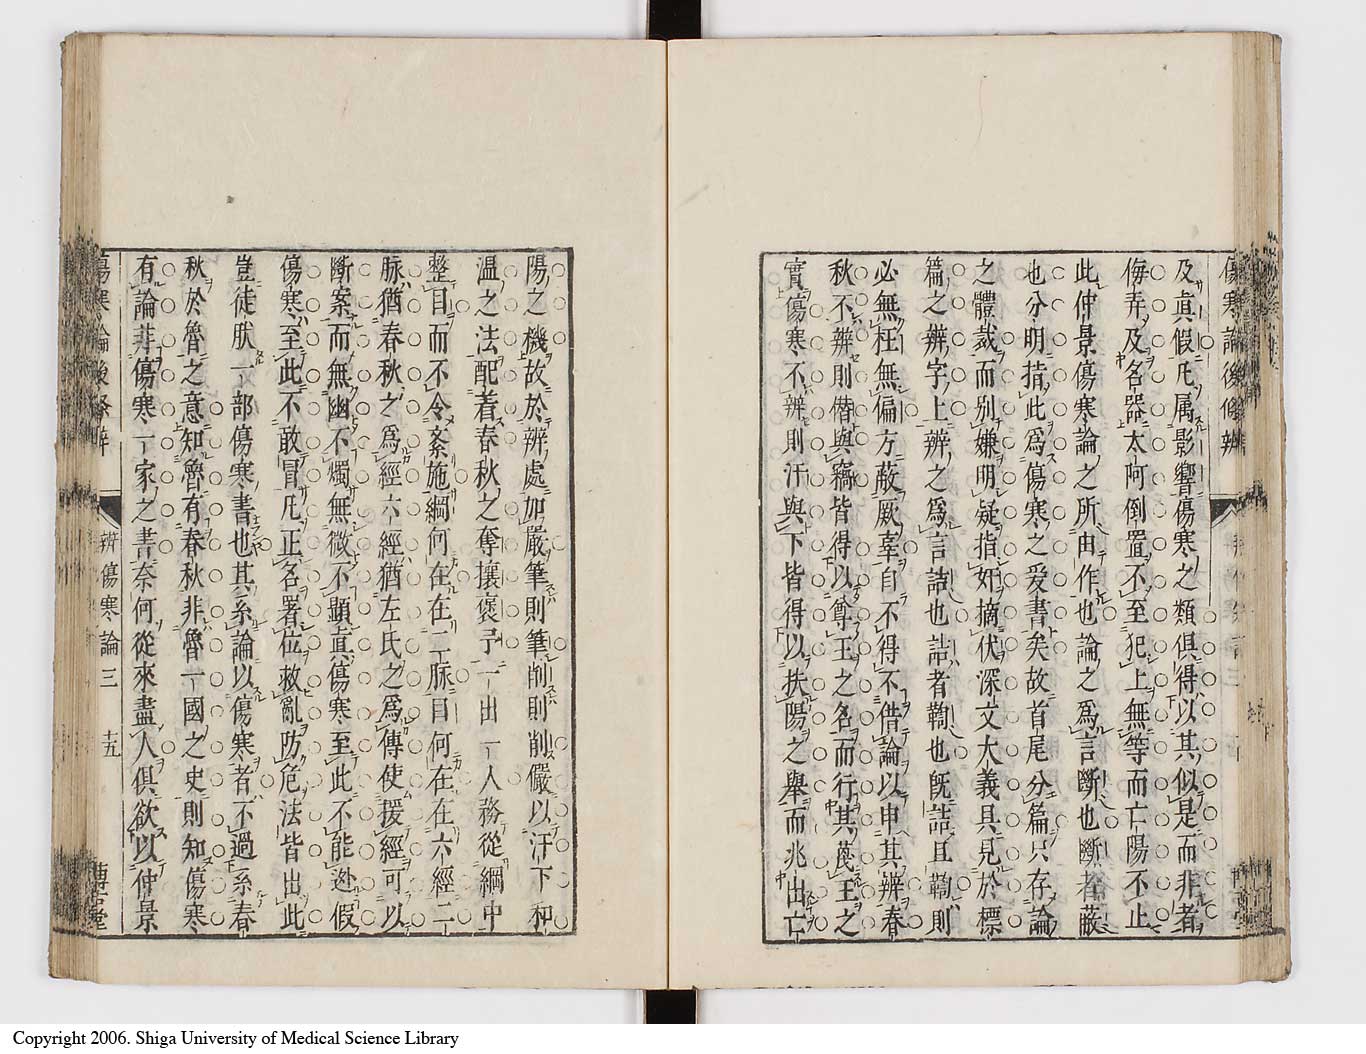 傷寒論後條辨
及真假凡属影響傷寒之類俱得以其似是而非者
侮弄及名器太阿倒置不至犯上無等而亡陽不止
此仲景傷寒論之所由作也論之為言斷也斷者蔽
也分明揹此為傷寒之爱書矣故首尾分篇只存論
之體裁而别嫌明疑指奸摘伏深文大義具見於標
篇之辨字上辨之為言詰也詰者鞫也旣詰且鞫則
必無枉無偏方蔽厥辜自不得不借論以申其辨春
秋不辨則僭與竊皆得以奪王之名而行其篾王之
實傷寒不辨則汗與下皆得以扶陽之舉而兆出亡
陽之機故於辨處加嚴筆則筆削則削儼以汗下和
温之法配着春秋之奪攘褒予一出一人務從綱中
整目而不令紊施綱何在在二脉目何在在六經二
脉猶春秋之為經六經猶左氏之為傳使援經可以
斷案而無幽不燭無微不顯真傷寒至此不能迯假
傷寒至此不敢冒凡正名署位救亂防危法皆出此
豈徒肰一部傷寒書也其系論以傷寒者不過系春
秋於魯之意知魯有春秋非魯一國之史則知傷寒
有論非傷寒一家之書奈何從來盡人俱欲以仲景
傷寒論後條辨
辨傷寒論三
十五
博古堂
Copyright 2006. Shiga University of Medical Science Library